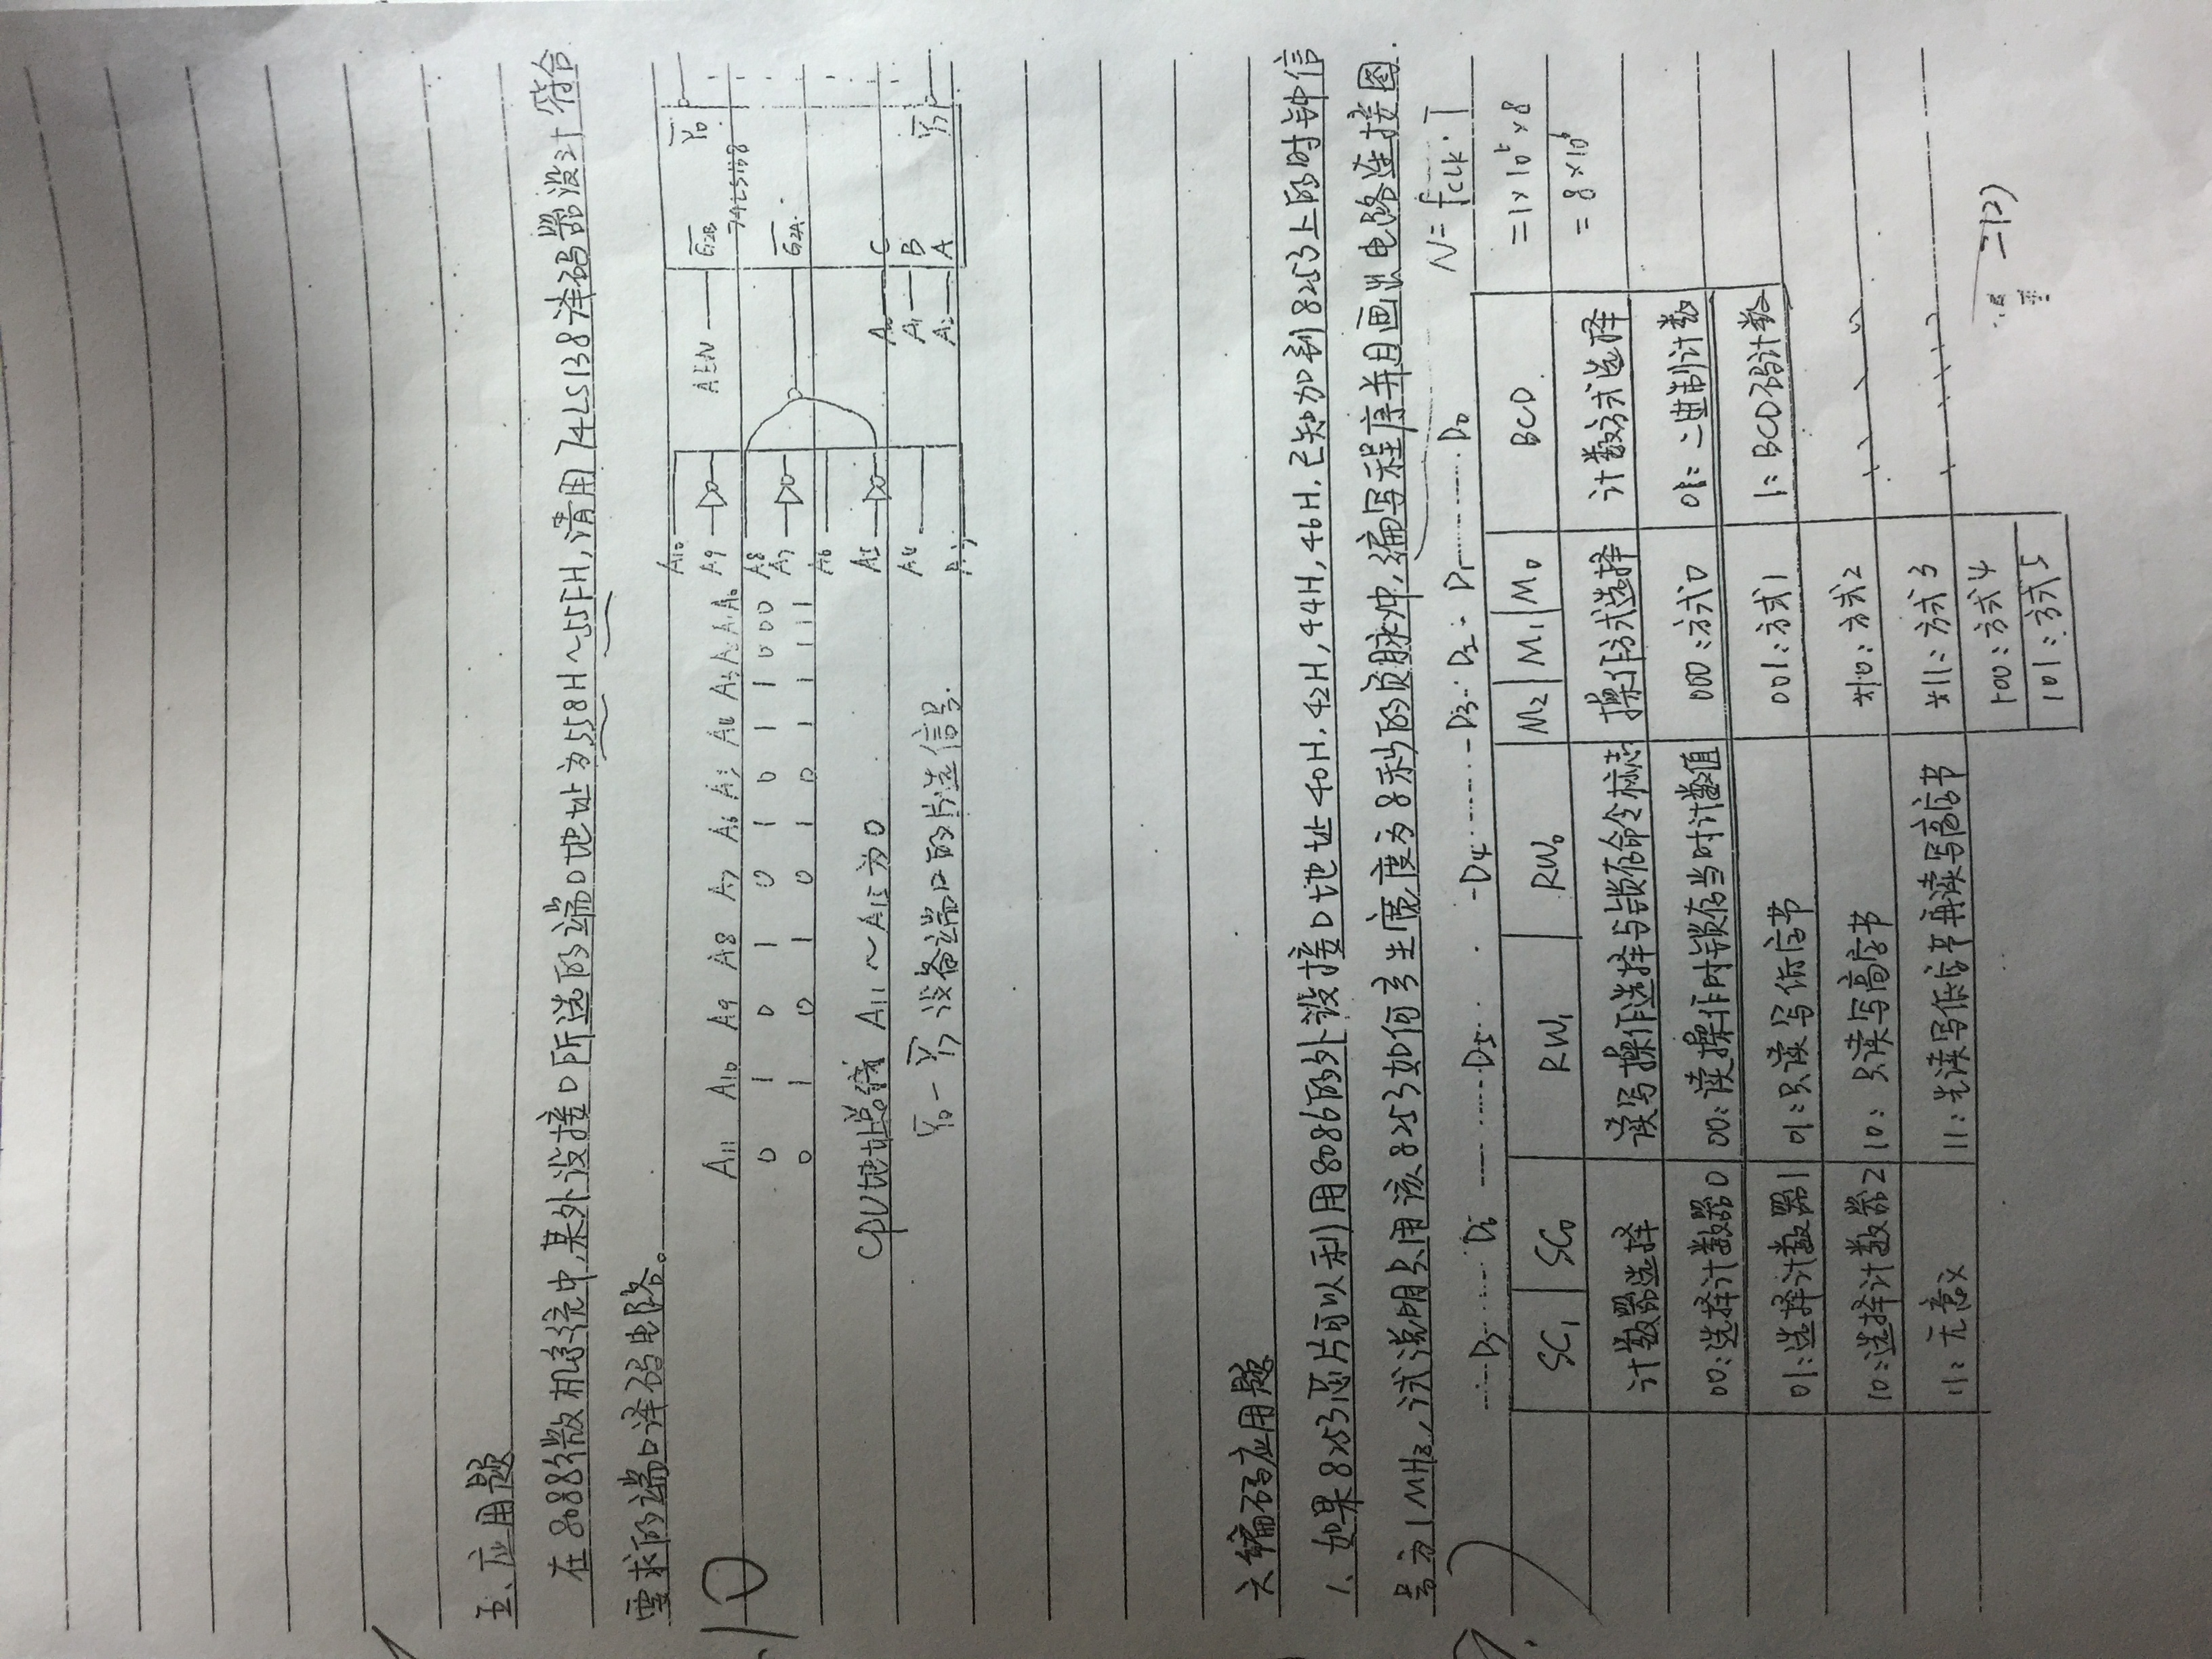 五、应用题
在8088微机系统中,某外设接口所选的端口地址为558H~55FH,请用74LS138译码器设计符合
要求的端口译码电路。
10
A11 A10 A9 A8 A7 A6 A5 A4 A3 A2 A1 A0
0 1 0 1 0 1 0 1 1 0 0 0
0 1 0 1 0 1 0 1 1 1 1 1
CPU地址总线 A11~A15为0
Y0-Y7设备端口的片选信号.
A10
A9
A8
A7
A6
A5
A4
A3
AEN
G2B
G2A
74LS138
Y0
Y7
A0 C
A1 B
A2 A
六编码应用题
1.如果8253芯片可以利用8086的外设接口地址40H,42H,44H,46H.已知加到8253上的时钟信
号为1MHz,试说明只用该8253如何产生宽度为8秒的负脉冲,编写程序并且画出电路连接图.
N=fCLK·T
=1×10⁶×8
=8×10⁶
D7 D6 D5 D4 D3 D2 D1 D0
SC1 SC0 RW1 RW0 M2 M1 M0 BCD
计数器选择 读写操作选择与锁存命令标志 操作方式选择 计数方式选择
00:选择计数器0 00:读操作时锁存当时计数值 000:方式0 0:二进制计数
01:选择计数器1 01:只读写低字节 001:方式1 1:BCD码计数
10:选择计数器2 10:只读写高字节 *10:方式2
11:无意义 11:先读写低字节再读写高字节 *11:方式3
100:方式4
101:方式5